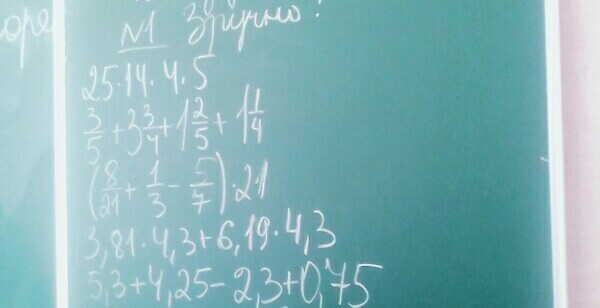 оре
№1 Зручно!
25·14·4·5
3/5+3 3/4+1 2/5+1 1/4
(8/21+1/3-5/7)·21
3,81·4,3+6,19·4,3
5,3+4,25-2,3+0,75